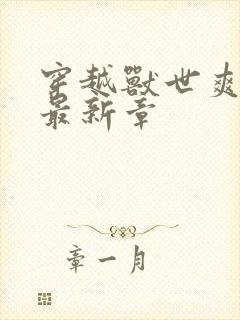 穿越獸世爽
最新章
章一月